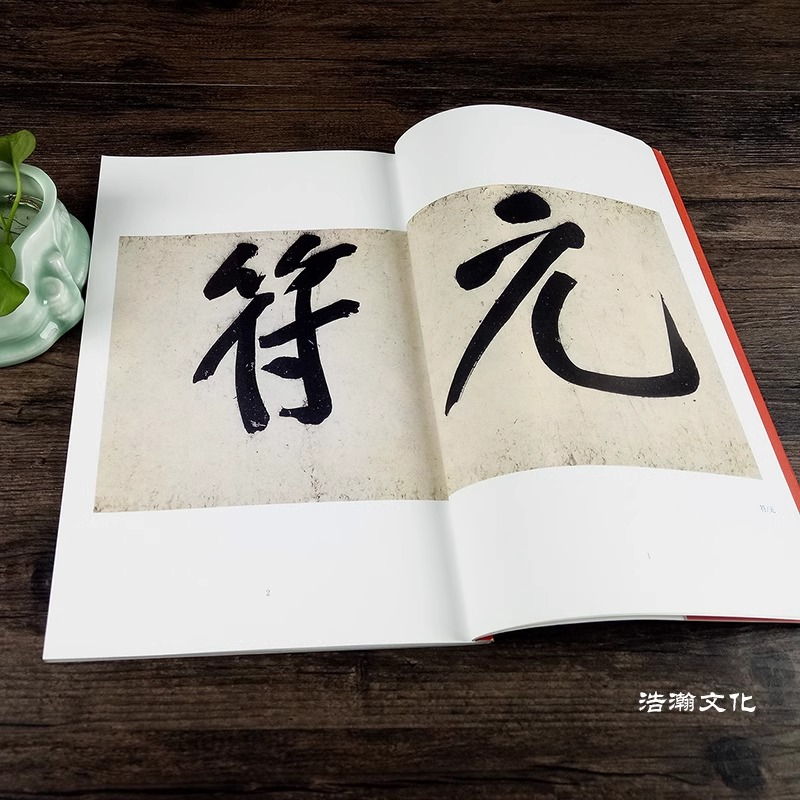 元
符
符/元
1
2
浩瀚文化